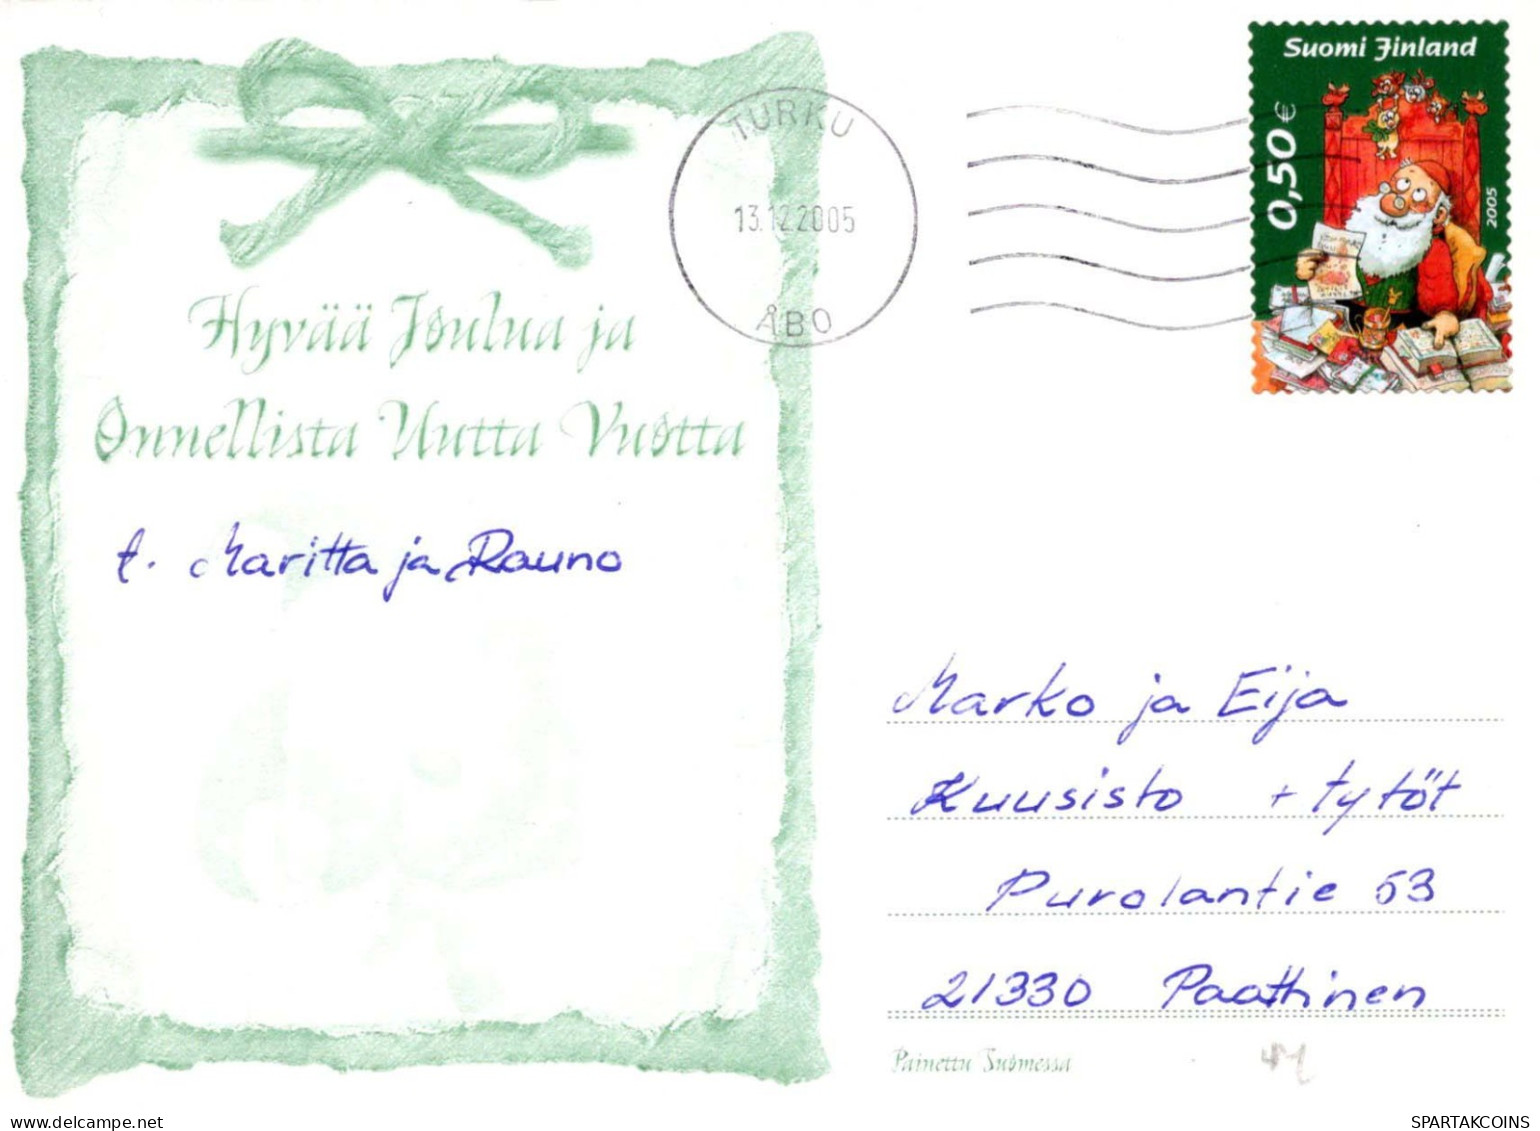 Suomi Finland
0,50 €
2005
TURKU
13.12.2005
ÅBO
Hyvää Joulua ja
Onnellista Uutta Vuotta
t. Maritta ja Rauno
Marko ja Eija
Kuusisto + tytöt
Purolantie 53
21330 Paattinen
Painettu Suomessa
SPARTAKCOINS